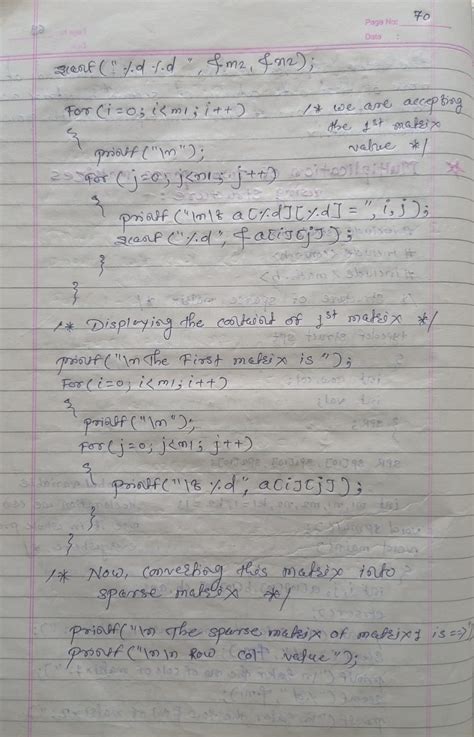 Page No: 70
Date :
scanf("%d %d", &m2, &n2);
For(i=0; i<m1; i++) /* we are accepting
the 1st matrix
value */
{
printf("\n");
For (j=0; j<n1; j++)
{
printf("\n\t a[%d][%d] = ", i, j);
scanf("%d", &a[i][j]);
}
}
/* Displaying the containt of 1st matrix */
printf("\n The First matrix is ");
For(i=0; i<m1; i++)
{
printf("\n");
For(j=0; j<n1; j++)
{
printf("\t %d", a[i][j]);
}
}
/* Now, converting this matrix into
sparse matrix */
printf("\n The sparse matrix of matrix1 is =>");
printf("\n\n Row col value");